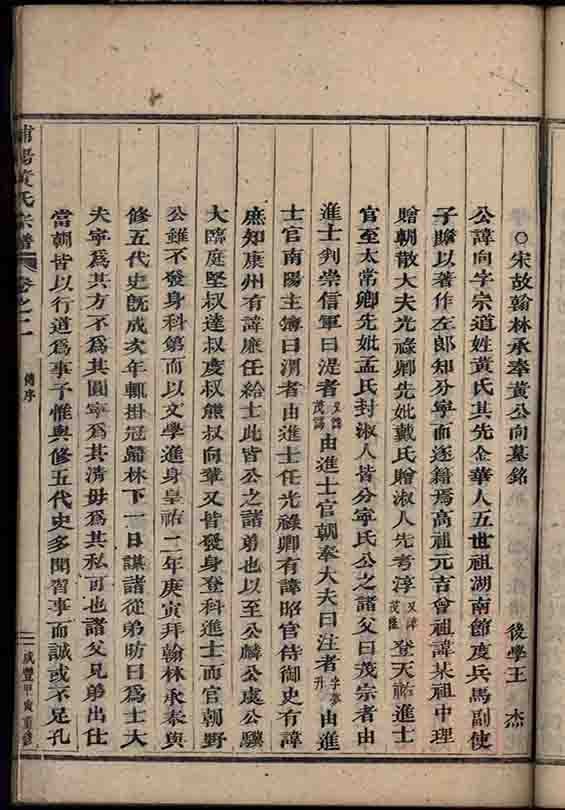 ○宋故翰林承奉黃公向墓銘
後學王　杰
公諱向字宗道姓黃氏其先金華人五世祖湖南節度兵馬副使
子贍以著作左郎知分寧而遂籍焉高祖元吉曾祖諱某祖中理
贈朝散大夫光祿卿先妣戴氏贈淑人先考淳又諱茂隆登天祐進士
官至太常卿先妣孟氏封淑人皆分寧氏公之諸父曰茂宗者由
進士判崇信軍曰湜者又諱茂諹由進士官朝奉大夫曰注者字夢升由進
士官南陽主簿曰渭者由進士任光祿卿有諱昭官侍御史有諱
庶知康州有諱廉任給士此皆公之諸弟也以至公麟公虔公驥
大臨庭堅叔達叔度叔熊叔向輩又皆發身登科進士而官朝野
公雖不發身科第而以文學進身皇祐二年庚寅拜翰林承奉與
修五代史既成次年輒掛冠歸林下一日謀諸從弟昉曰為士大
夫寧為其方不為其圓寧為其清毋為其私可也諸父兄弟出仕
當朝皆以行道為事予惟與修五代史多聞習事而誠或不足孔
浦陽黃氏宗譜 卷之二 傳序 咸豐甲寅重修